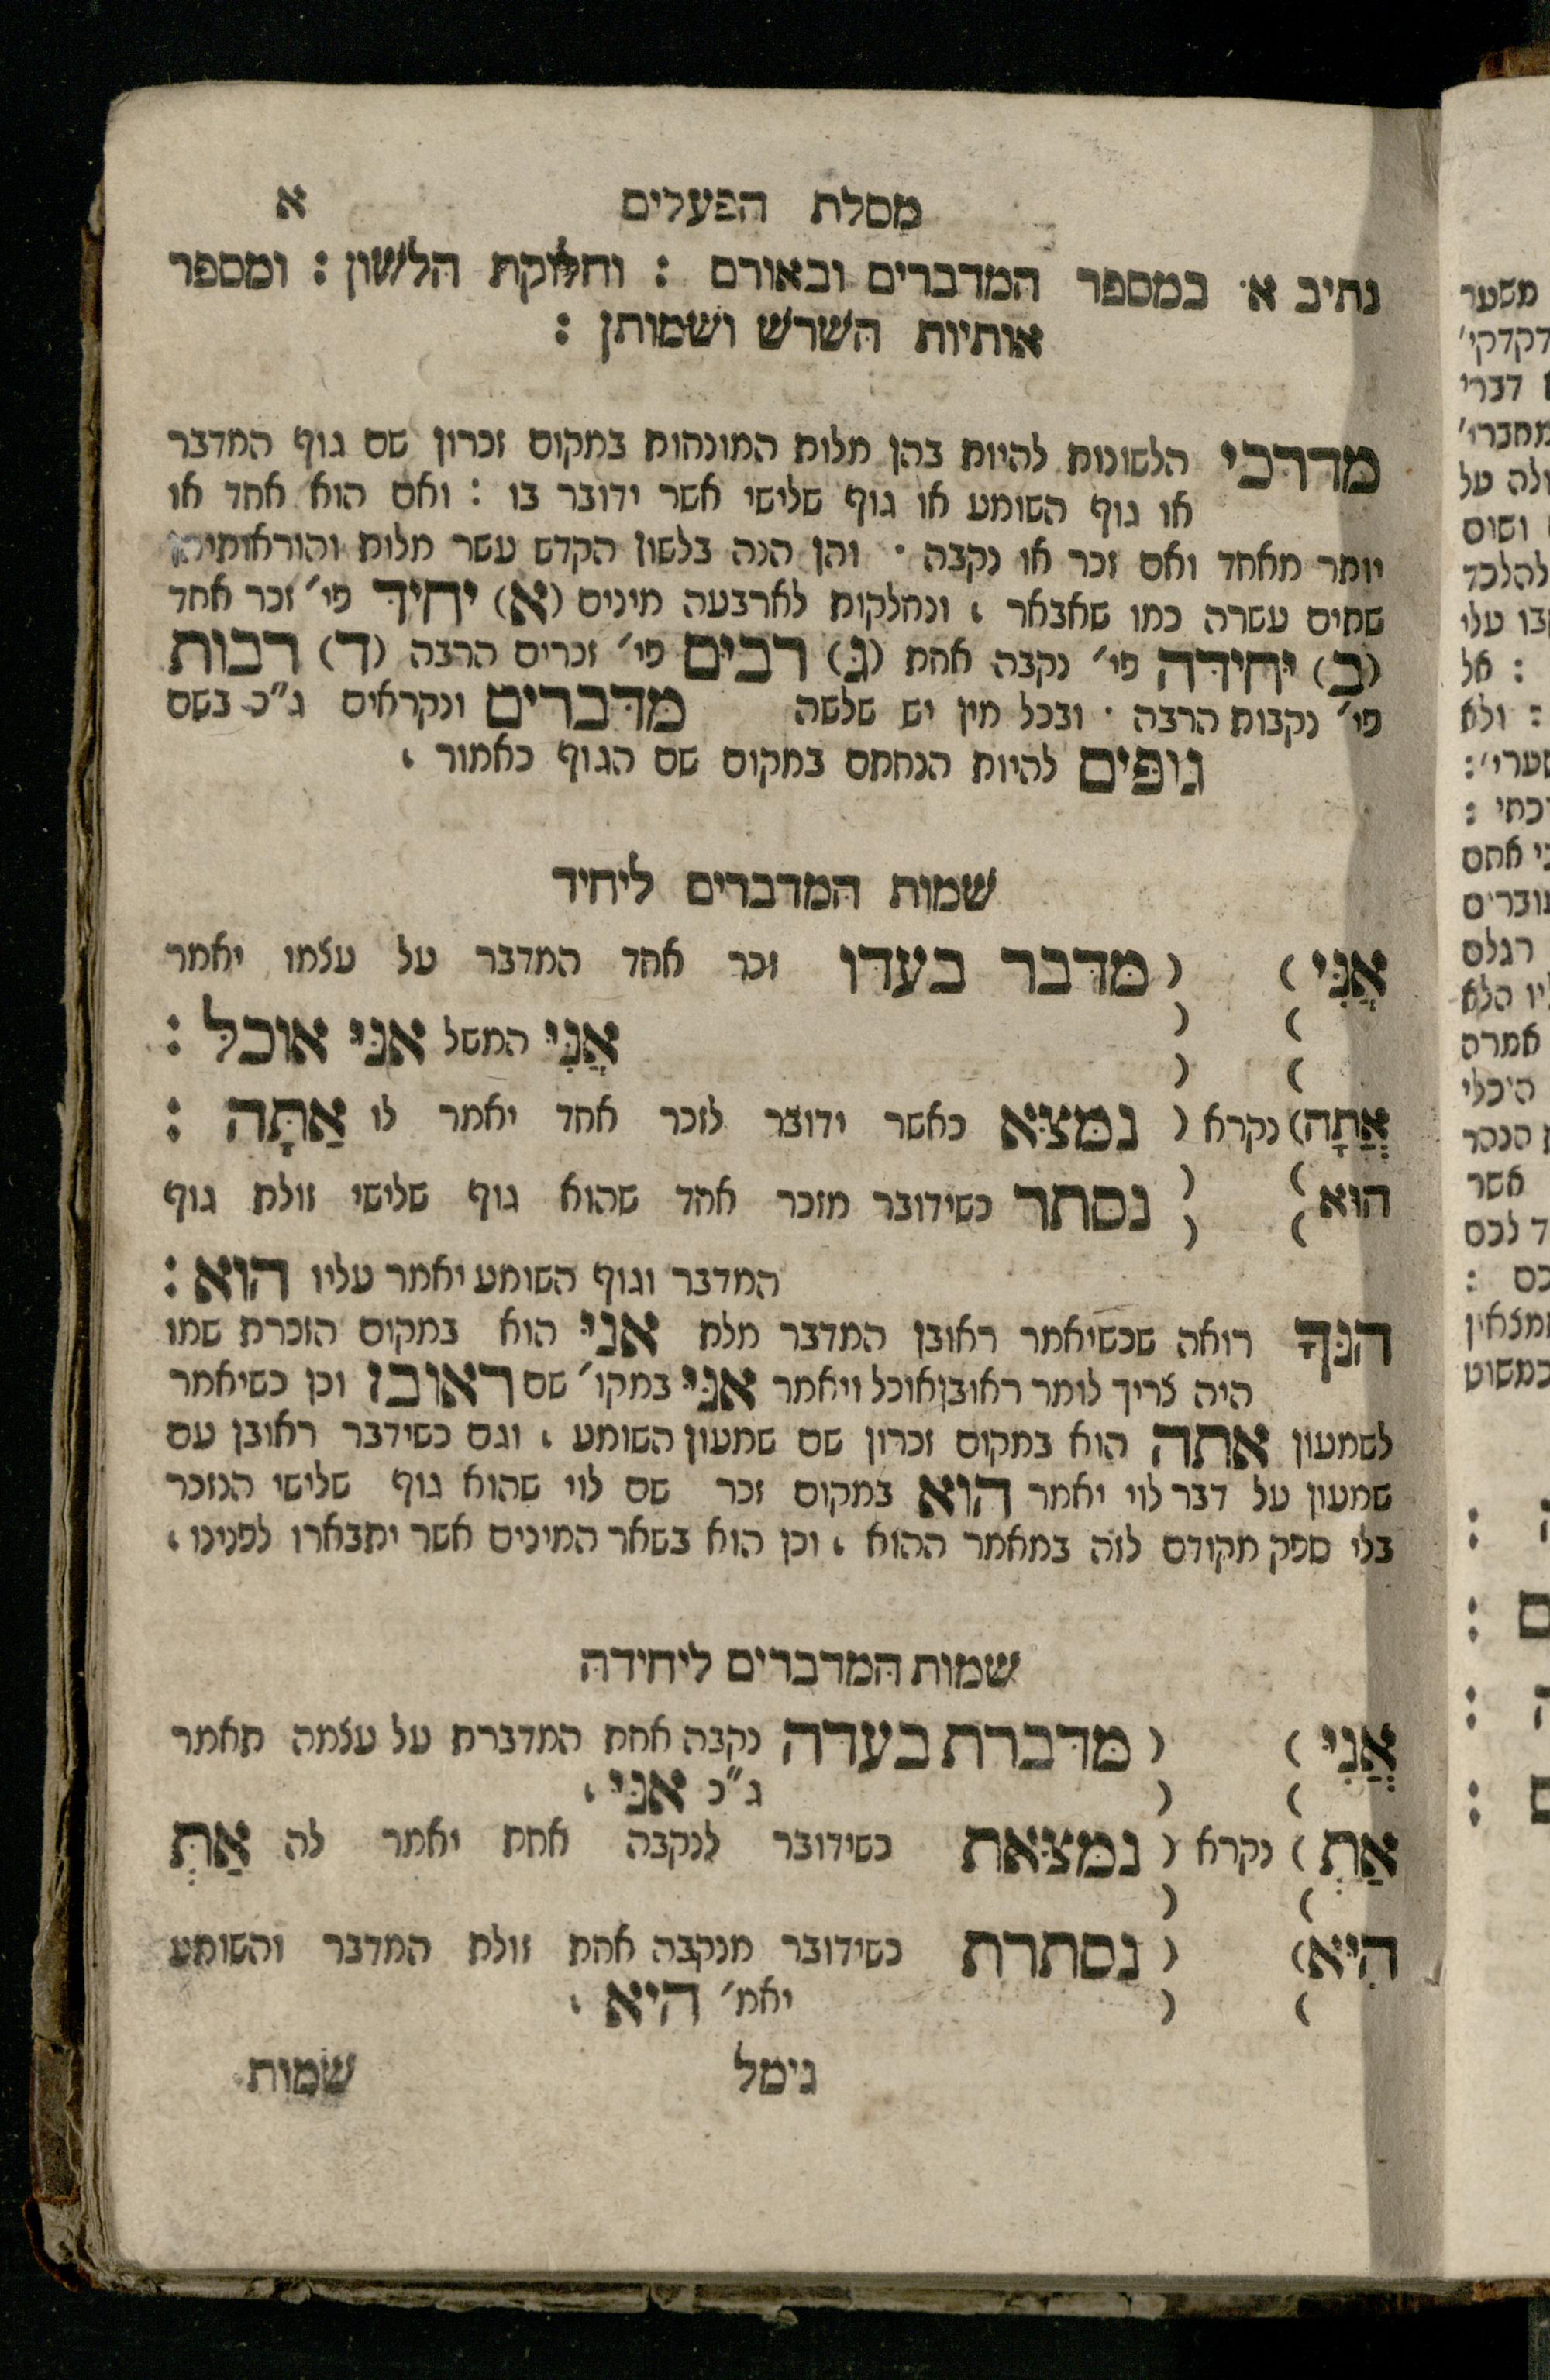 מסלת הפעלים א
נתיב א׳ במספר המדברים ובאורם : וחלוקת הלשון : ומספר
אותיות השרש ושמותן :
מדרכי הלשונות להיות בהן מלות המונחות במקום זכרון שם גוף המדבר
או גוף השומע או גוף שלישי אשר ידובר בו : ואם הוא אחד או
יותר מאחד ואם זכר או נקבה · והן הנה בלשון הקדש עשר מלות והוראותיהן
שתים עשרה כמו שאבאר , ונחלקות לארבעה מינים (א) יחיד פי׳ זכר אחד
(ב) יחידה פי׳ נקבה אחת (ג) רבים פי׳ זכרים הרבה (ד) רבות
פי׳ נקבות הרבה · ובכל מין יש שלשה מדברים ונקראים ג״כ בשם
גופים להיות הנחתם במקום שם הגוף כאמור ,
שמות המדברים ליחיד
אֲנִי ) ( מדבר בעדו זכר אחד המדבר על עצמו יאמר
אֲנִי המשל אני אוכל :
אַתָּה) נקרא ( נמצא כאשר ידובר לזכר אחד יאמר לו אַתָּה :
הוא ) ( נסתר כשידובר מזכר אחד שהוא גוף שלישי זולת גוף
המדבר וגוף השומע יאמר עליו הוא :
הנך רואה שכשיאמר ראובן המדבר מלת אני הוא במקום הזכרת שמו
היה צריך לומר ראובן אוכל ויאמר אני במקו׳ שם ראובן וכן כשיאמר
לשמעון אתה הוא במקום זכרון שם שמעון השומע , וגם כשידבר ראובן עם
שמעון על דבר לוי יאמר הוא במקום זכר שם לוי שהוא גוף שלישי הנזכר
בלי ספק מקודם לזה במאמר ההוא , וכן הוא בשאר המינים אשר יתבארו לפנינו ,
שמות המדברים ליחידה
אֲנִי ) ( מדברת בעדה נקבה אחת המדברת על עצמה תאמר
ג״כ אני ,
אַתְּ ) נקרא ( נמצאת כשידובר לנקבה אחת יאמר לה אַתְּ
הִיא) ( נסתרת כשידובר מנקבה אחת זולת המדבר והשומע
יאמ׳ היא ,
גימל שמות